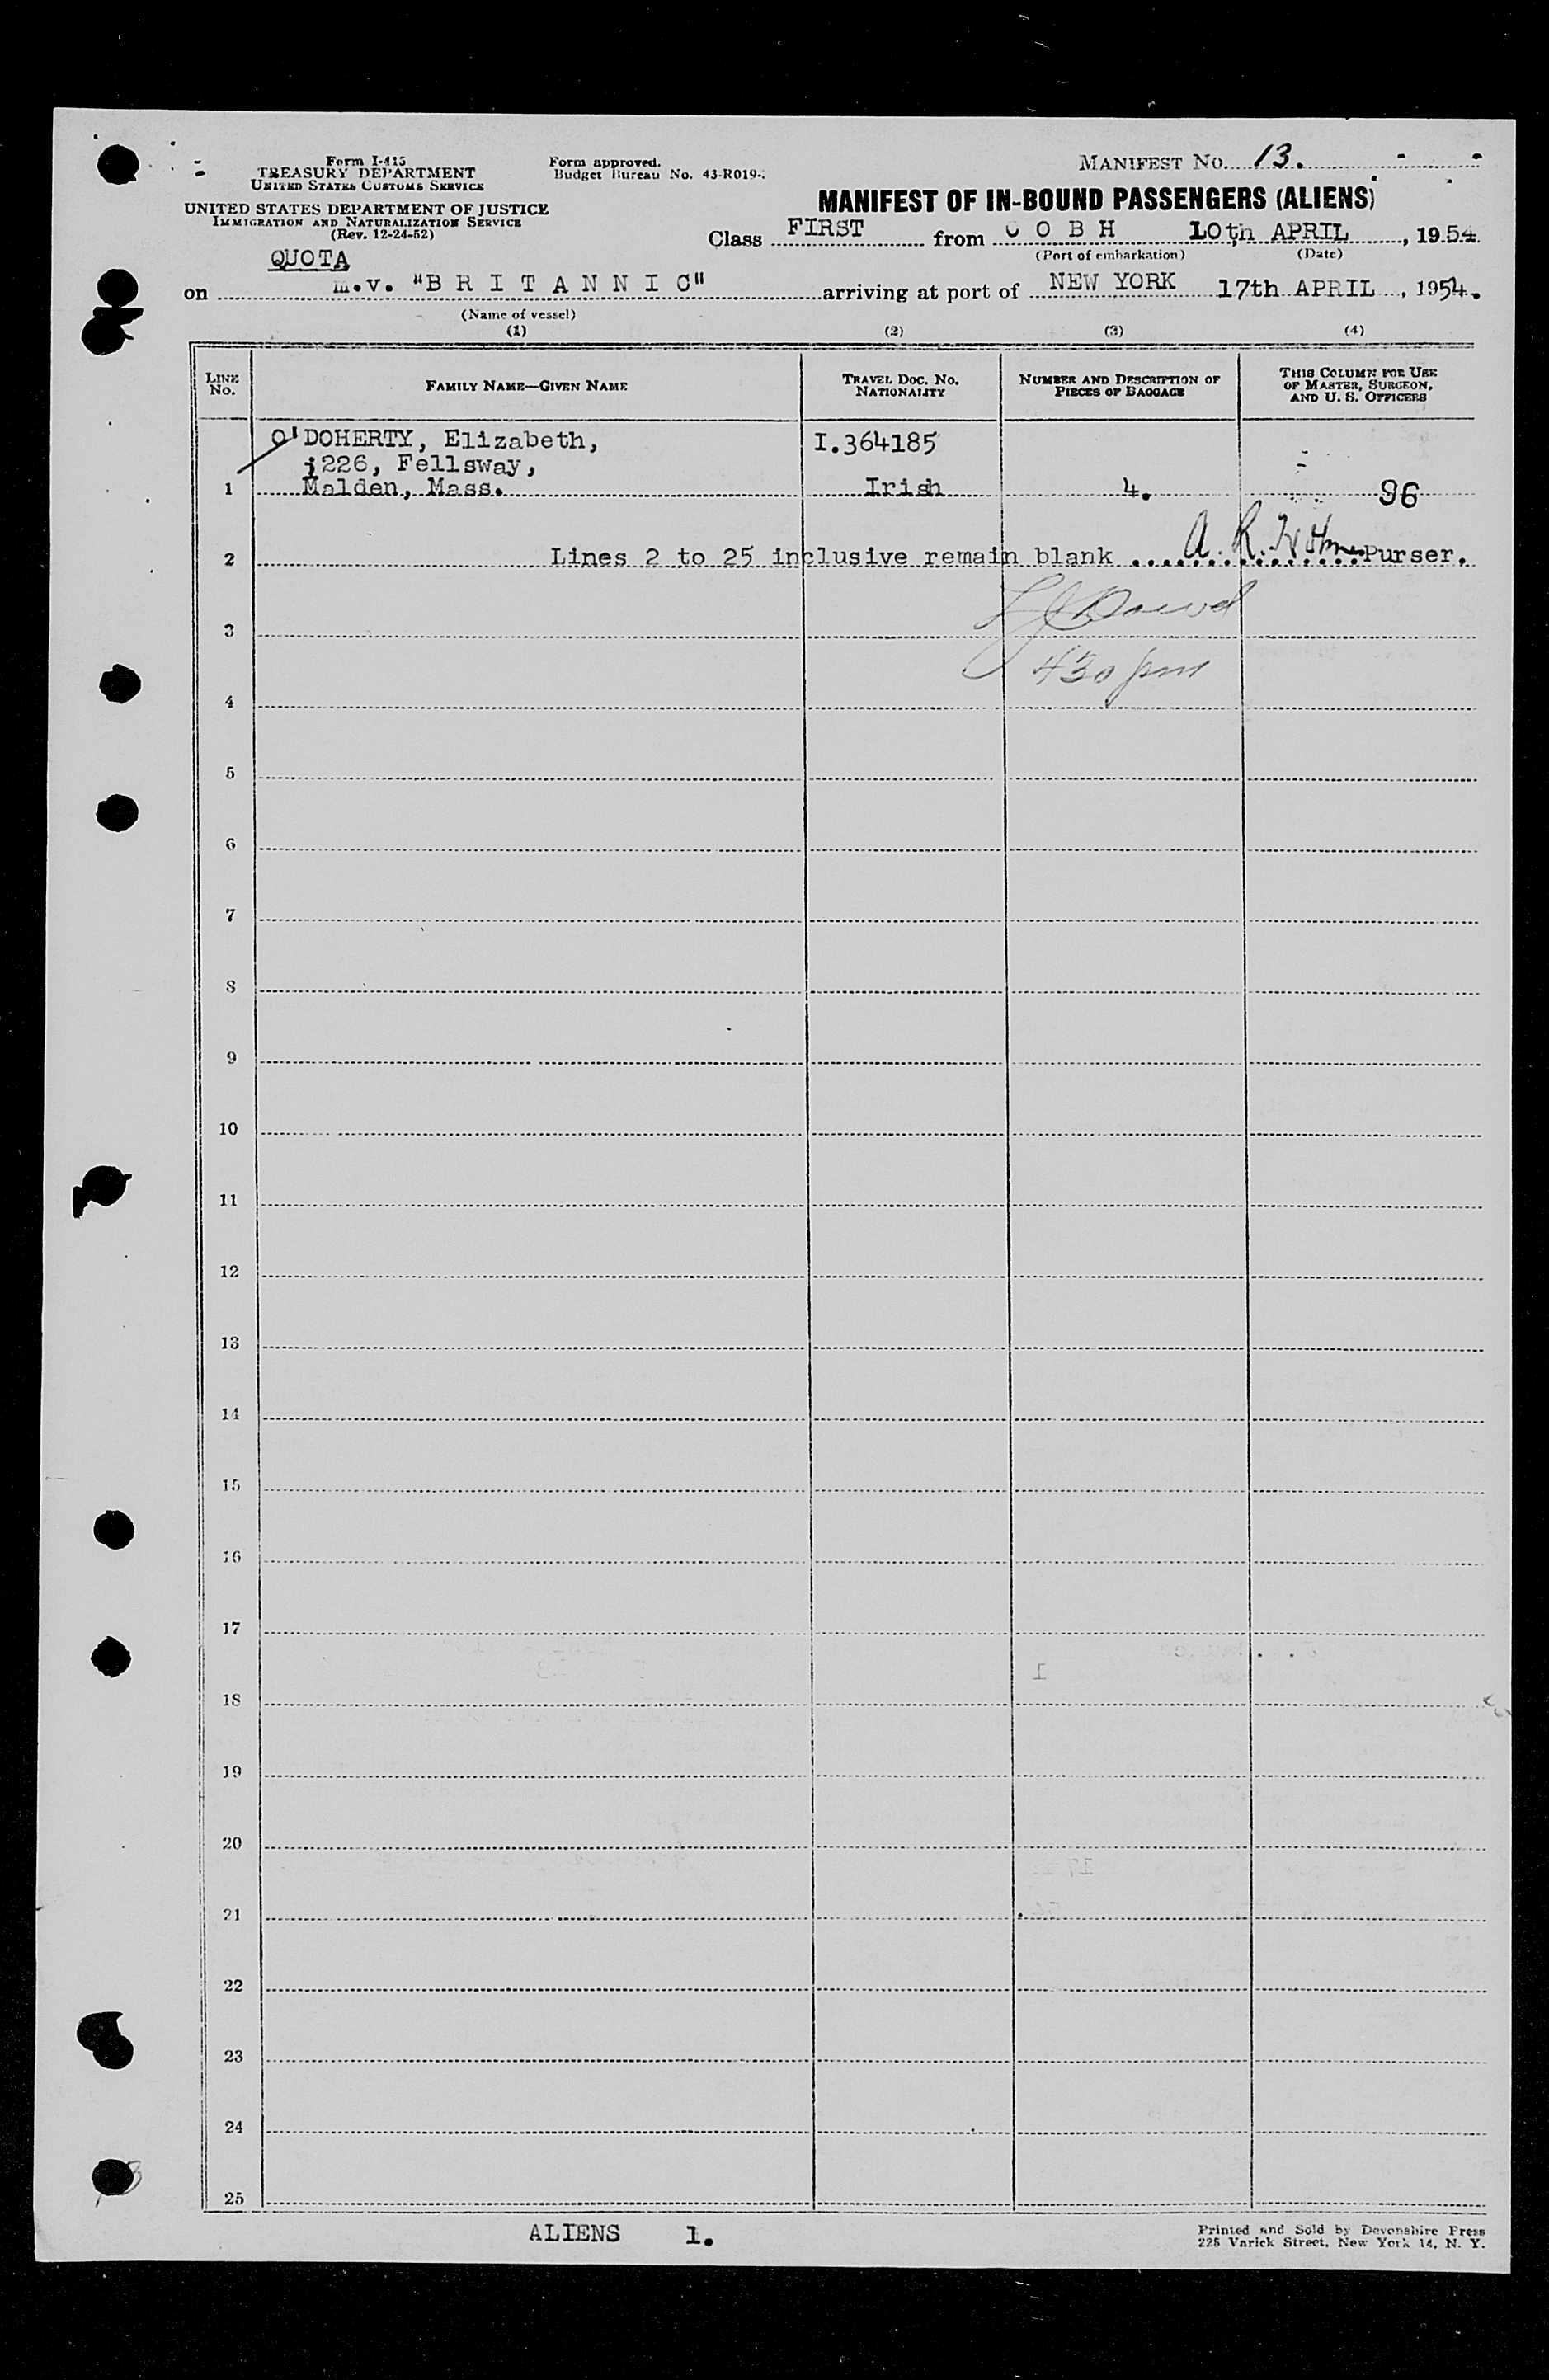 Form I-415
TREASURY DEPARTMENT
UNITED STATES CUSTOMS SERVICE
UNITED STATES DEPARTMENT OF JUSTICE
IMMIGRATION AND NATURALIZATION SERVICE
(Rev. 12-24-52)
Form approved.
Budget Bureau No. 43-R019-
MANIFEST NO. 13.
MANIFEST OF IN-BOUND PASSENGERS (ALIENS)
Class FIRST from COBH 10th APRIL, 1954
(Port of embarkation) (Date)
QUOTA
on m.v. "BRITANNIC" arriving at port of NEW YORK 17th APRIL, 1954.
(Name of vessel)
(1) (2) (3) (4)
LINE No. FAMILY NAME—GIVEN NAME TRAVEL DOC. NO. NATIONALITY NUMBER AND DESCRIPTION OF PIECES OF BAGGAGE THIS COLUMN FOR USE OF MASTER, SURGEON, AND U. S. OFFICERS
O'DOHERTY, Elizabeth, I.364185
226, Fellsway,
1 Malden, Mass. Irish 4. 96
2 Lines 2 to 25 inclusive remain blank A. R. Purser.
3
430 pm
4
5
6
7
8
9
10
11
12
13
14
15
16
17
18
19
20
21
22
23
24
25
ALIENS 1.
Printed and Sold by Devonshire Press
225 Varick Street, New York 14, N. Y.